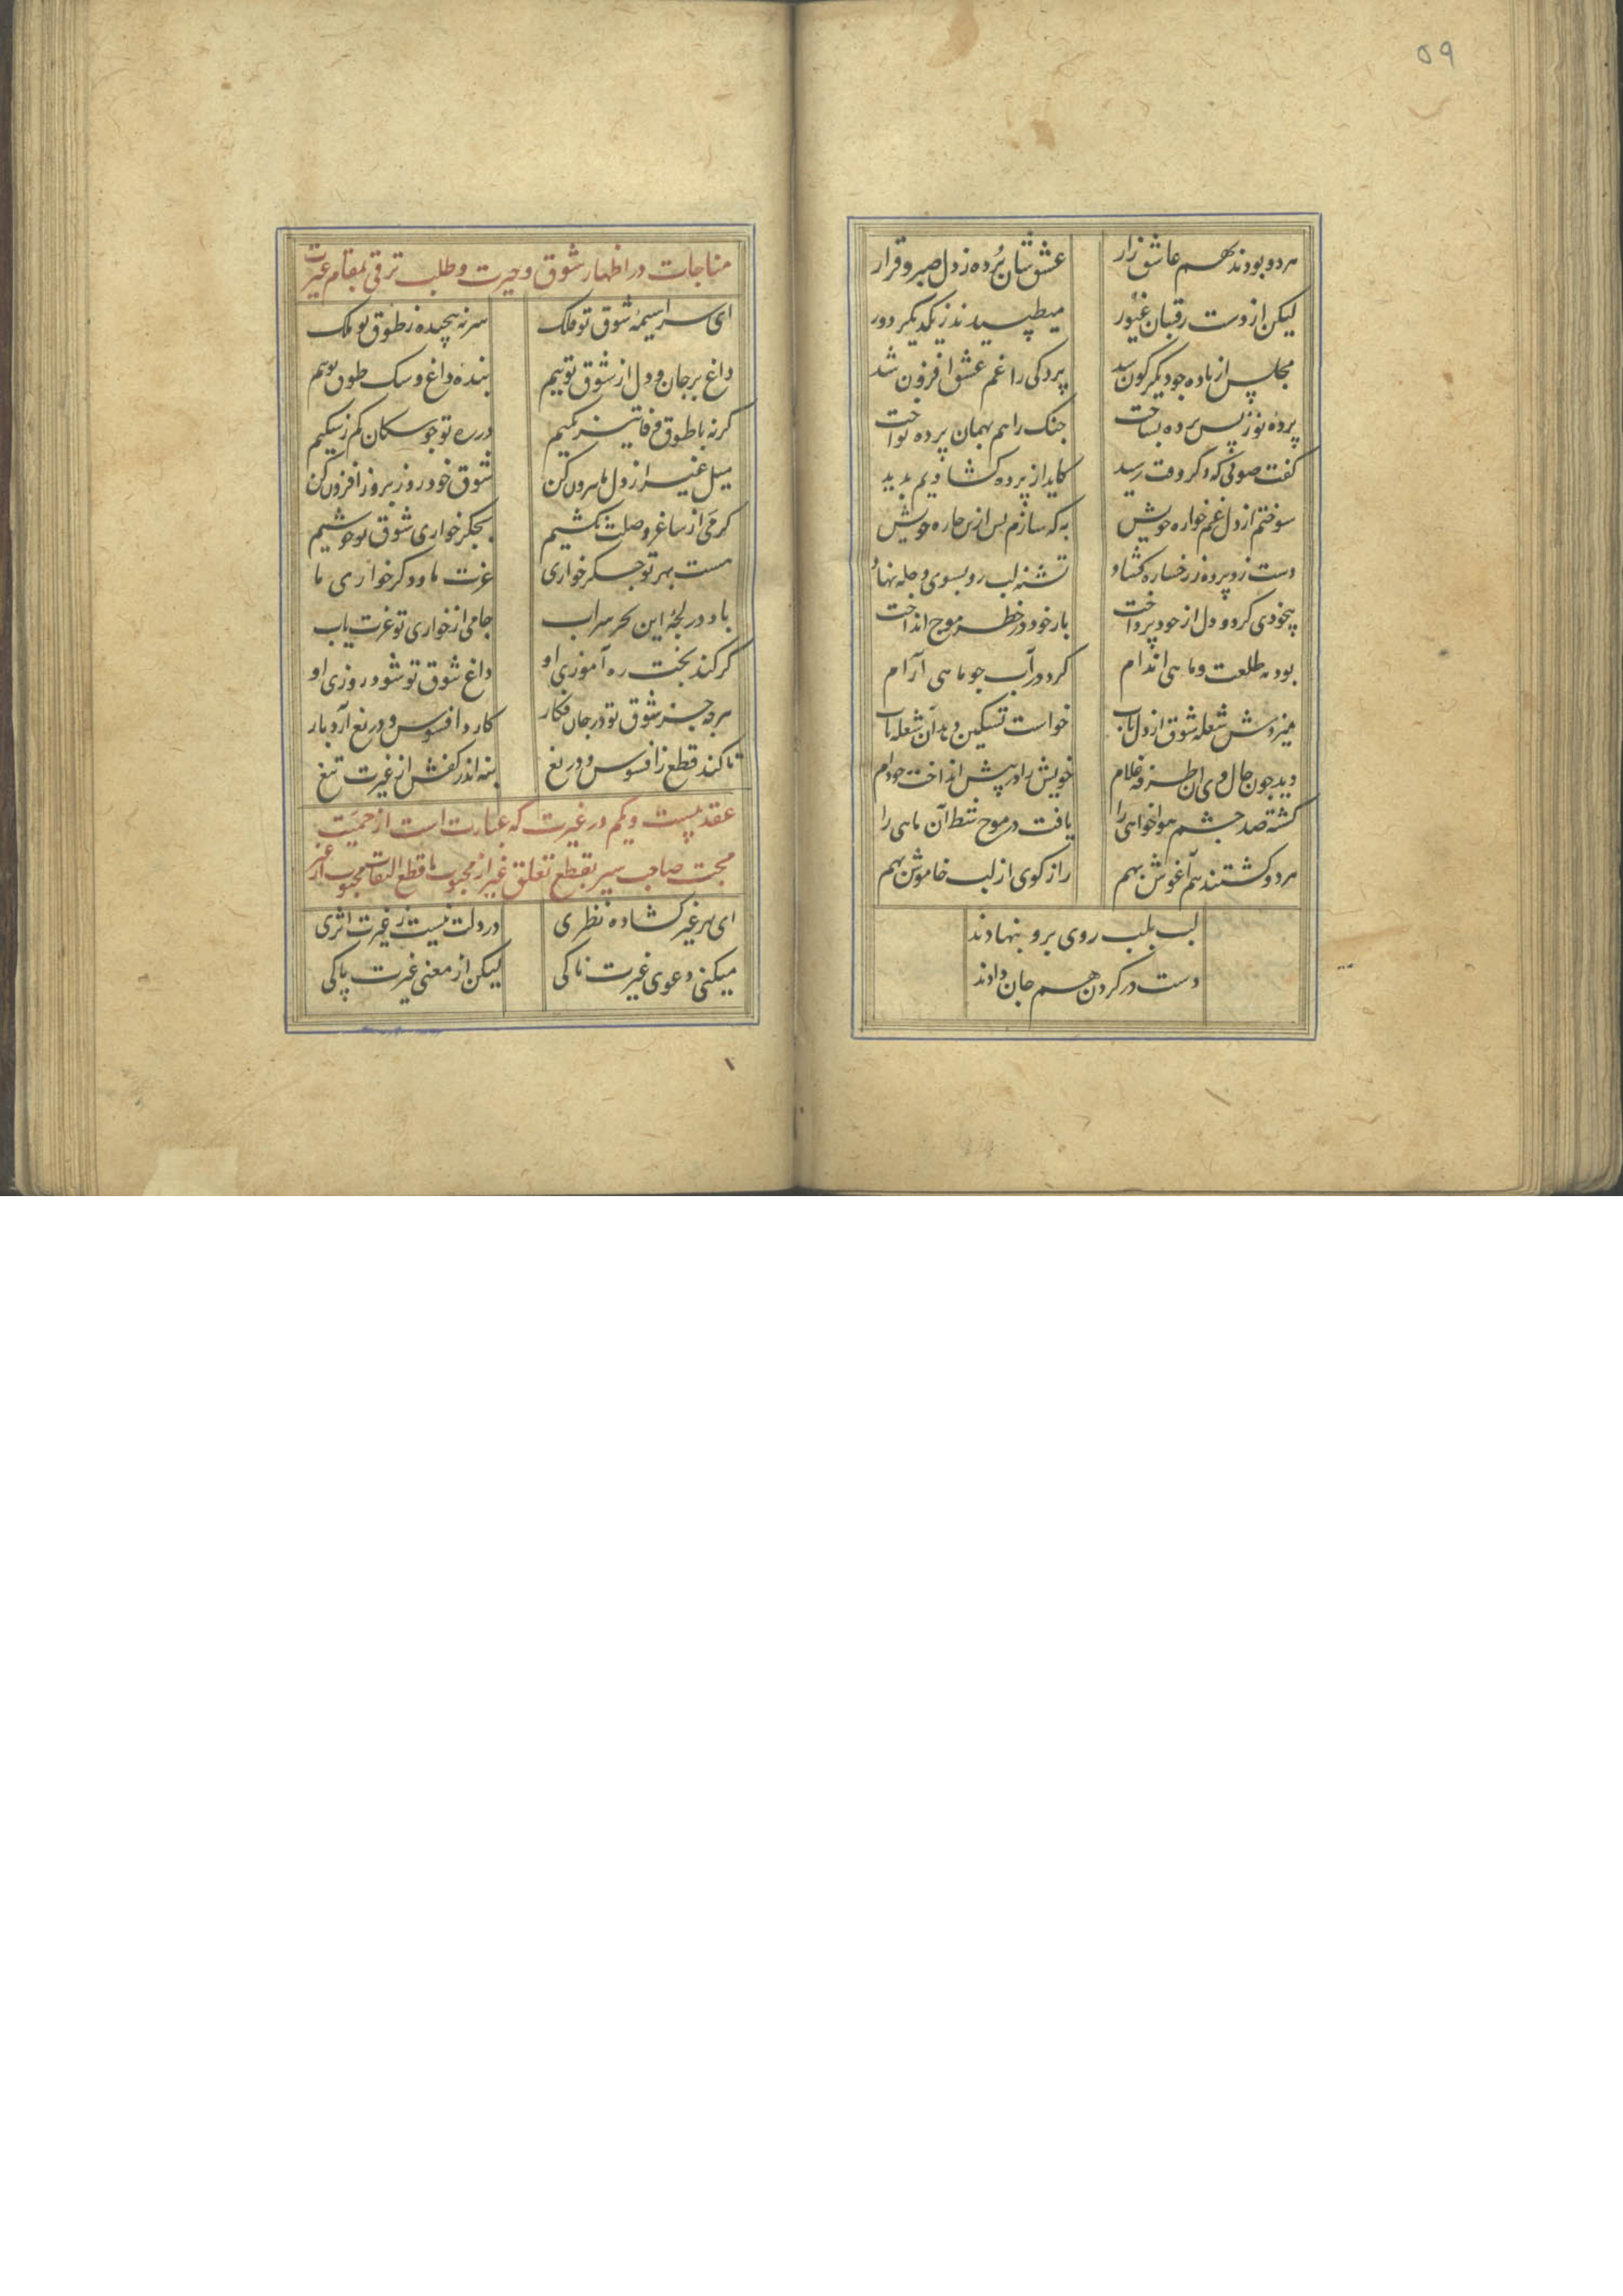 ۵۹
هردو بودند بهم عاشق زار عشق شان برده ز دل صبر و قرار
لیکن از دست رقیبان غیور میطپیدند ز یکدیگر دور
مجلس از باده چو دیگرگون شد پردکی را غم عشق افزون شد
پرده نو ز پس پرده بساخت چنک را هم بهمان پرده نواخت
کفت صوفی که دکر وقت رسید کاید از پرده کشادیم پدید
سوختم از دل غم خواره خویش به که سازم پس ازین چاره خویش
دست زد پرده ز رخساره کشاد تشنه لب رو بسوی دجله نهاد
بیخودی کرد و دل از خود پرداخت بار خود در خطر موج انداخت
بود مه طلعت و ماهی اندام کرد در آب چو ماهی آرام
میزدش شعله شوق از دل تاب خواست تسکین دهد آن شعله بآب
دید چون حال وی آن طرفه غلام خویش را در پیش انداخت چو دام
کشته صد چشم هواخواهی را یافت در موج شط آن ماهی را
هردو کشتند هم آغوش بهم راز کوی از لب خاموش بهم
لب بلب روی برو بنهادند
دست در کردن هم جان دادند
مناجات در اظهار شوق و حیرت و طلب ترقی بمقام غیرت
ای سراسیمه شوق تو ملک سر نه پیچیده ز طوق تو ملک
داغ بر جان و دل از شوق توییم بنده داغ و سک طوق توییم
کرنه با طوق وفا تیز تکیم در ره تو چو سکان کم ز سکیم
میل غیر از دل ما بیرون کن شوق خود روز بروز افزون کن
کر می از ساغر وصلت نکشیم بجکر خواری شوق تو خوشیم
هست بهر تو جکر خواری عزت ما و دکر خواری ما
باد در لجه این بحر سراب جامی از خواری تو عزت یاب
کر کند بخت ره آموزی او داغ شوق تو شود روزی او
هرچه جز شوق تو در جان فکار کارد افسوس و دریغ آرد بار
تا کند قطع ز افسوس و دریغ بنه اندر کفش از غیرت تیغ
عقد بیست و یکم در غیرت که عبارت است از حمیت
محبت صاحب سیر بقطع تعلق غیر از محبوب یا قطع التفات محبوب از غیر
ای بهر غیر کشاده نظری در دلت نیست ز غیرت اثری
میکنی دعوی غیرت ناکی لیکن از معنی غیرت پاکی